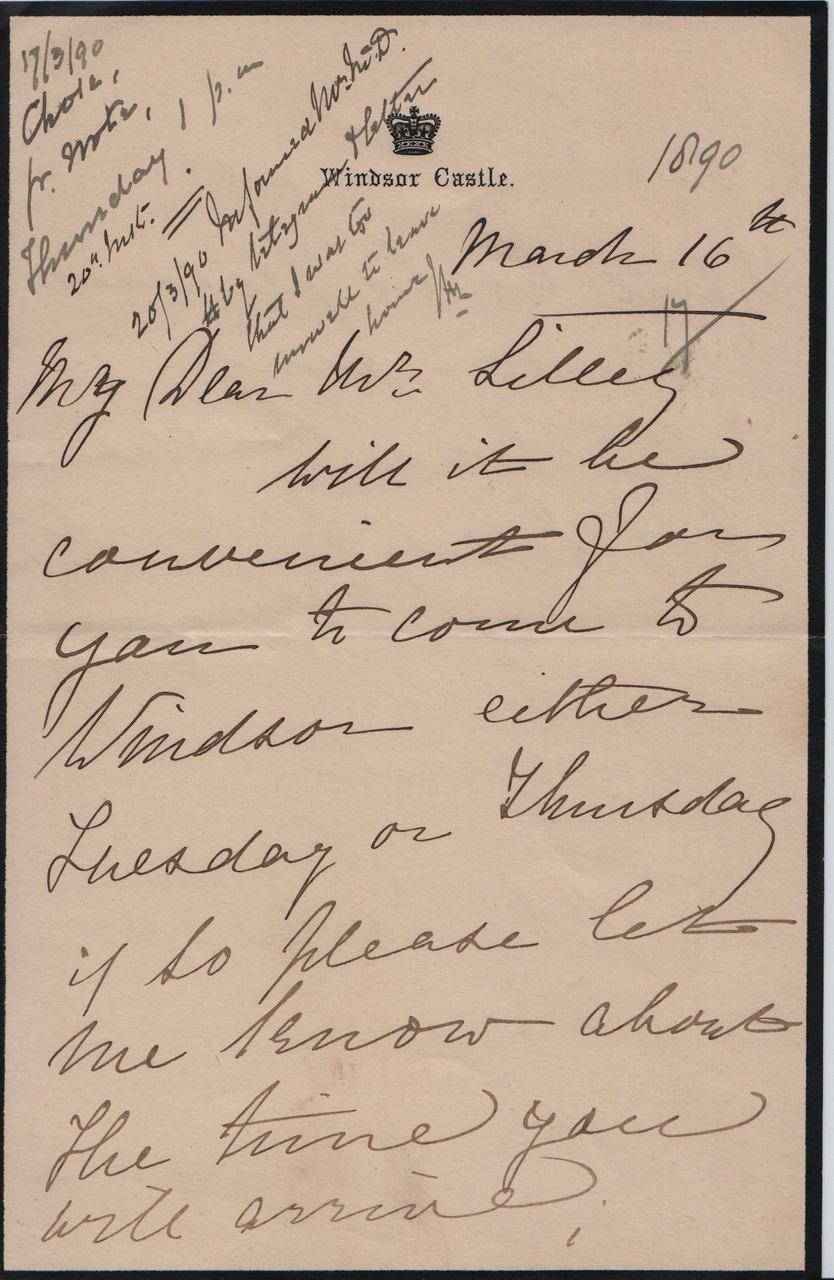 17/3/90
Thursday 1 p.m
20th Inst.
20/3/90 Informed Mr McD.
by telegram & letter
that I was too
unwell to leave
home
Windsor Castle.
1890
March 16th
17
My Dear Mr. Lilley
will it be
convenient for
you to come to
Windsor either
Tuesday or Thursday
if so please let
me know about
the time you
will arrive,